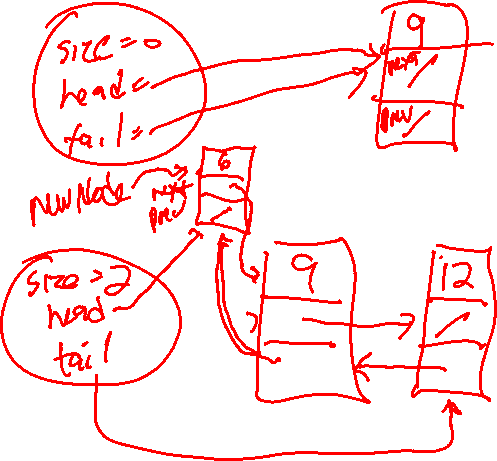 size=0
head=
tail=
9
next
prev
newNode
6
next
prev
size=2
head
tail
9
12